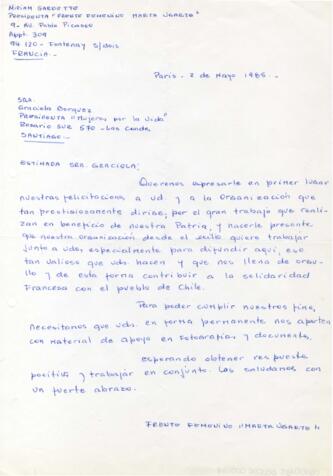 Miriam Gardotto
Presidenta "Frente Femenino Marta Ugarte"
9- Av. Pablo Picasso
Appt. 309
94120- Fontenay S/Bois
FRANCIA.-
Paris - 2 de Mayo 1985.-
SRA.
Graciela Borquez
Presidenta "Mujeres por la Vida"
Rosario Sur 570 - Las Condes
SANTIAGO.-
ESTIMADA SRA. GRACIELA:
Queremos expresarle en primer lugar
nuestras felicitaciones a ud y a la Organización que
tan prestigiosamente dirige, por el gran trabajo que reali-
zan en beneficio de nuestra Patria, y hacerle presente
que nuestra organización desde el exilio quiere trabajar
junto a uds, especialmente para difundir aquí, eso
tan valioso que uds. hacen y que nos llena de orgu-
llo y de esta forma contribuir a la solidaridad
Francesa con el pueblo de Chile.
Para poder cumplir nuestros fines,
necesitamos que uds. en forma permanente nos aporten
con material de apoyo en fotografías y documentos.
esperando obtener respuesta
positiva y trabajar en conjunto. Las saludamos con
un fuerte abrazo.
FRENTE FEMENINO "MARTA UGARTE"